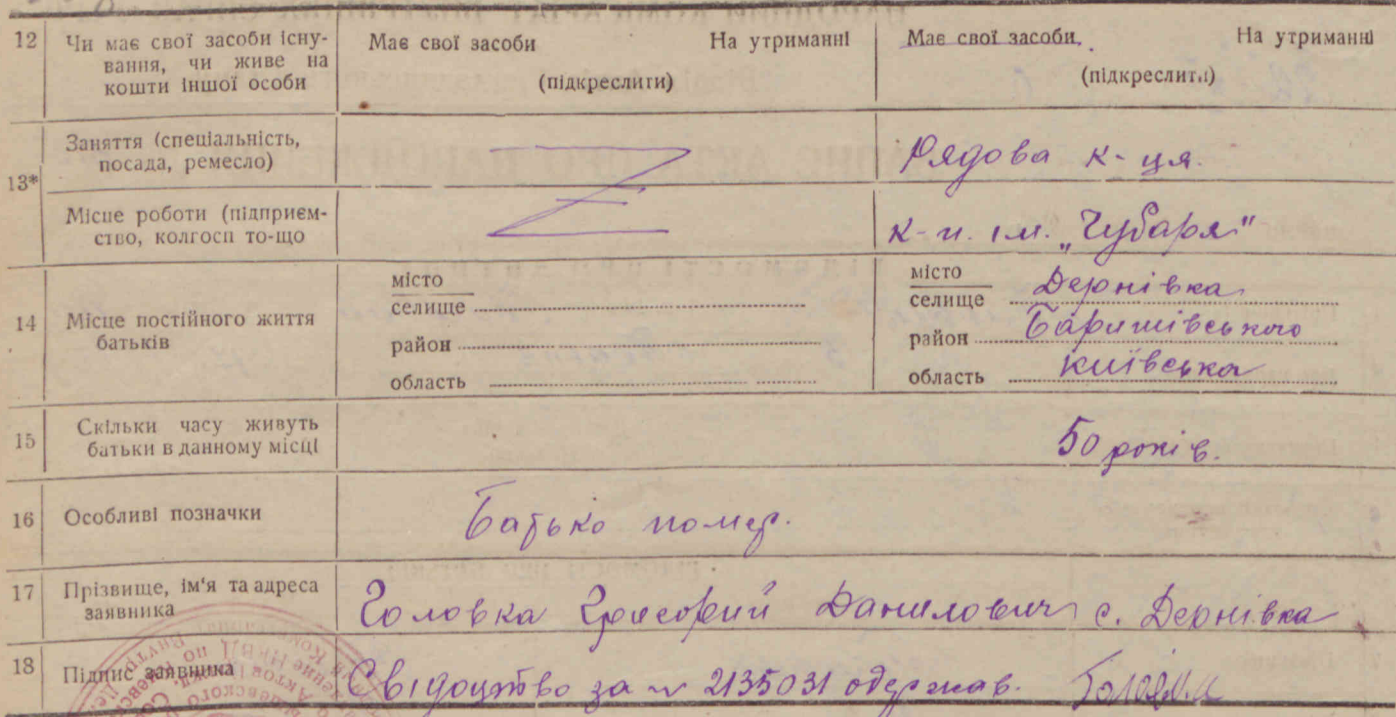 12 Чи має свої засоби існу-
вання, чи живе на
кошти іншої особи
Має свої засоби На утриманні
(підкреслити)
Має свої засоби На утриманні
(підкреслити)
13*
Заняття (спеціальність,
посада, ремесло)
Рядова к-ця.
Місце роботи (підприєм-
ство, колгосп то-що
к-п. ім. „Чубаря"
14 Місце постійного життя
батьків
місто
селище
район
область
місто
селище Дернівка
район Баришівського
область Київська
15 Скільки часу живуть
батьки в данному місці
50 років.
16 Особливі позначки
Батько помер.
17 Прізвище, ім'я та адреса
заявника
Головка Григорий Данилович с. Дернівка
18 Підпис заявника
Свідоцтво за № 2135031 одержав.